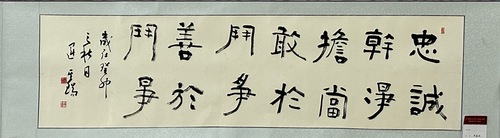 忠誠
幹淨
擔當
敢於
鬥爭
善於
鬥爭
歲在癸卯
之秋日